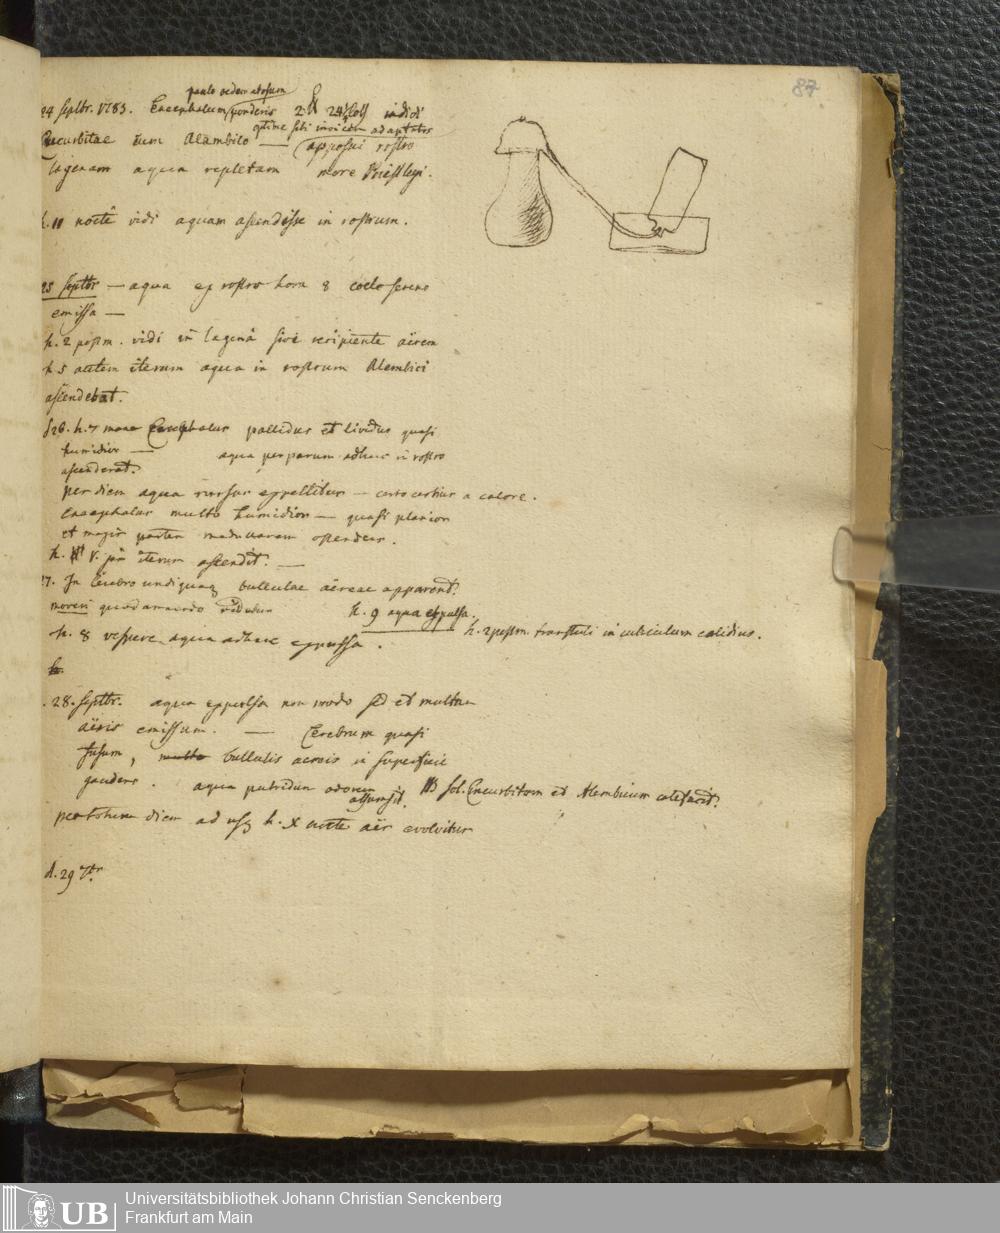 87
paulo oedematosum
24 Septbr. 1783. Encephalum ponderis 2 ℔ 24 Loth indidi
optime sibi invicem adaptatis
Cucurbitae cum Alambico — apposui rostro
lagenam aqua repletam more Priestleyi.
h. 11 nocte vidi aquam ascendisse in rostrum.
25 Septbr — aqua ex rostro hora 8 coelo sereno
emissa —
h. 2 postm. vidi in lagenâ sive recipiente aërem
h 5 autem iterum aqua in rostrum Alembici
ascendebat.
26. h. 7 mane Encephalus pallidus et lividus quasi
humidior — aqua perparum adhuc in rostro
ascenderat.
per diem aqua rursus expellitur — certo certius a calore.
Encephalus multo humidior — quasi planior
et magis partem medullarem ostendens.
h. V. pm iterum ascendit. —
27. In Cerebro undiquaq bullulae aëreae apparent.
moveri quodammodo videbam h. 9 aqua expulsa.
h. 2 postm. transtuli in cubiculum calidius.
h. 8 vespere aqua adhuc expulsa.
h.
28. Septbr. aqua expulsa non modo sed et multum
aëris emissum. — Cerebrum quasi
fusum, multo bullulis aereis in superficie
gaudens. aqua putridum odorem assumsit. sol. Cucurbitam et Alembicum calefacit.
per totum diem ad usq h. X nocte aër evolvitur
d. 29 7br
UB
Universitätsbibliothek Johann Christian Senckenberg
Frankfurt am Main